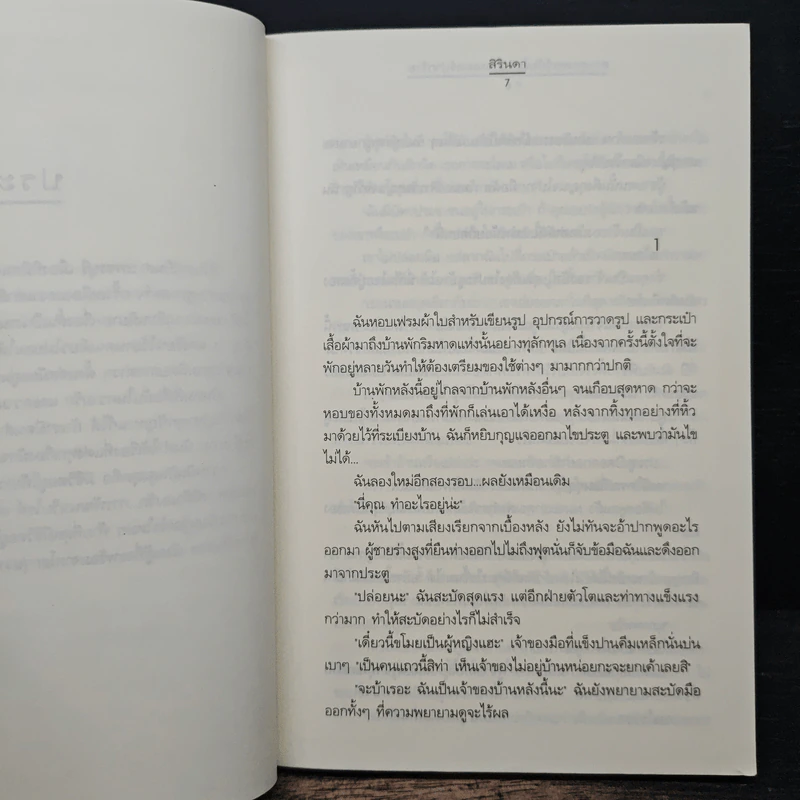 สิรินดา
7
1
ฉันหอบเฟรมผ้าใบสำหรับเขียนรูป อุปกรณ์การวาดรูป และกระเป๋า
เสื้อผ้ามาถึงบ้านพักริมหาดแห่งนั้นอย่างทุลักทุเล เนื่องจากครั้งนี้ตั้งใจที่จะ
พักอยู่หลายวันทำให้ต้องเตรียมของใช้ต่างๆ มามากกว่าปกติ
บ้านพักหลังนี้อยู่ไกลจากบ้านพักหลังอื่นๆ จนเกือบสุดหาด กว่าจะ
หอบของทั้งหมดมาถึงที่พักก็เล่นเอาได้เหงื่อ หลังจากทิ้งทุกอย่างที่หิ้ว
มาด้วยไว้ที่ระเบียงบ้าน ฉันก็หยิบกุญแจออกมาไขประตู และพบว่ามันไข
ไม่ได้...
ฉันลองใหม่อีกสองรอบ...ผลยังเหมือนเดิม
"นี่คุณ ทำอะไรอยู่น่ะ"
ฉันหันไปตามเสียงเรียกจากเบื้องหลัง ยังไม่ทันจะอ้าปากพูดอะไร
ออกมา ผู้ชายร่างสูงที่ยืนห่างออกไปไม่ถึงฟุตนั่นก็จับข้อมือฉันและดึงออก
มาจากประตู
"ปล่อยนะ" ฉันสะบัดสุดแรง แต่อีกฝ่ายตัวโตและท่าทางแข็งแรง
กว่ามาก ทำให้สะบัดอย่างไรก็ไม่สำเร็จ
"เดี๋ยวนี้ขโมยเป็นผู้หญิงแฮะ" เจ้าของมือที่แข็งปานคีมเหล็กนั่นบ่น
เบาๆ "เป็นคนแถวนี้สิท่า เห็นเจ้าของไม่อยู่บ้านหน่อยกะจะยกเค้าเลยสิ"
"จะบ้าเรอะ ฉันเป็นเจ้าของบ้านหลังนี้นะ" ฉันยังพยายามสะบัดมือ
ออกทั้งๆ ที่ความพยายามดูจะไร้ผล